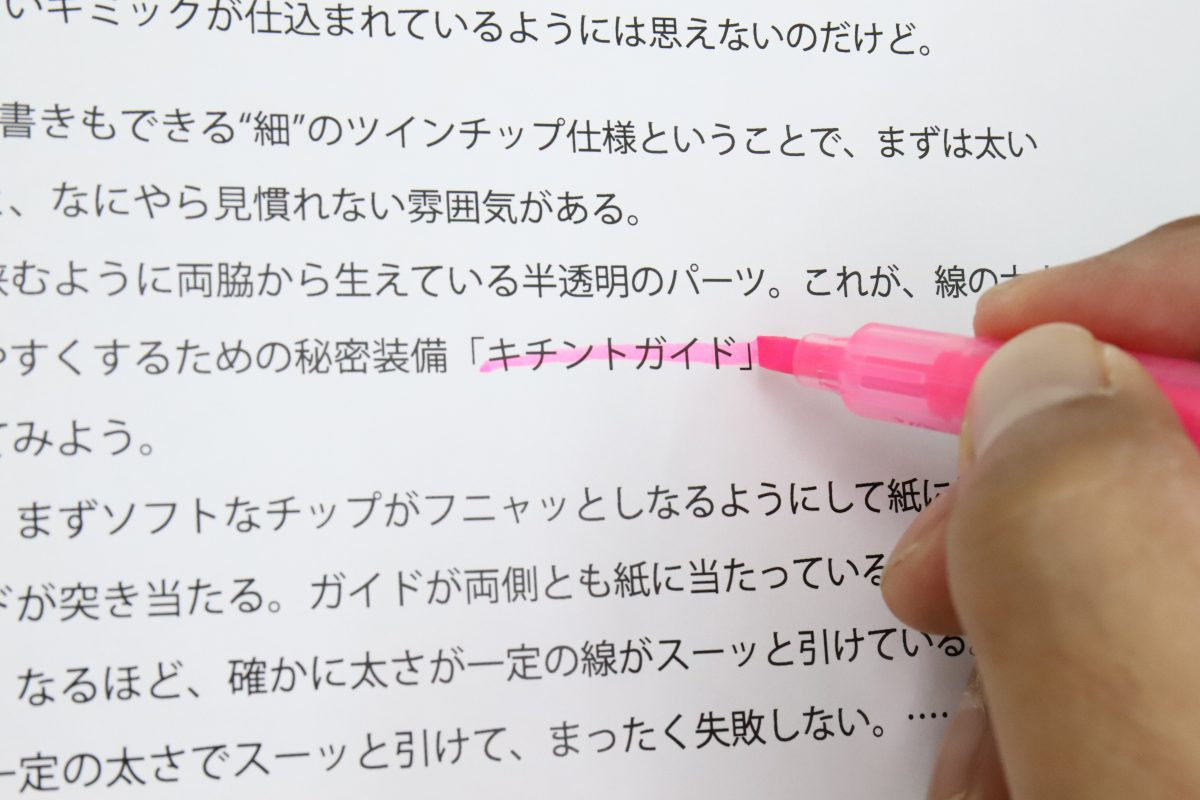 いギミックが仕込まれているようには思えないのだけど。
書きもできる“細”のツインチップ仕様ということで、まずは太い
、なにやら見慣れない雰囲気がある。
挟むように両脇から生えている半透明のパーツ。これが、線の
やすくするための秘密装備「キチントガイド」
てみよう。
まずソフトなチップがフニャッとしなるようにして紙に
ドが突き当たる。ガイドが両側とも紙に当たっている
なるほど、確かに太さが一定の線がスーッと引けている。
一定の太さでスーッと引けて、まったく失敗しない。‥‥